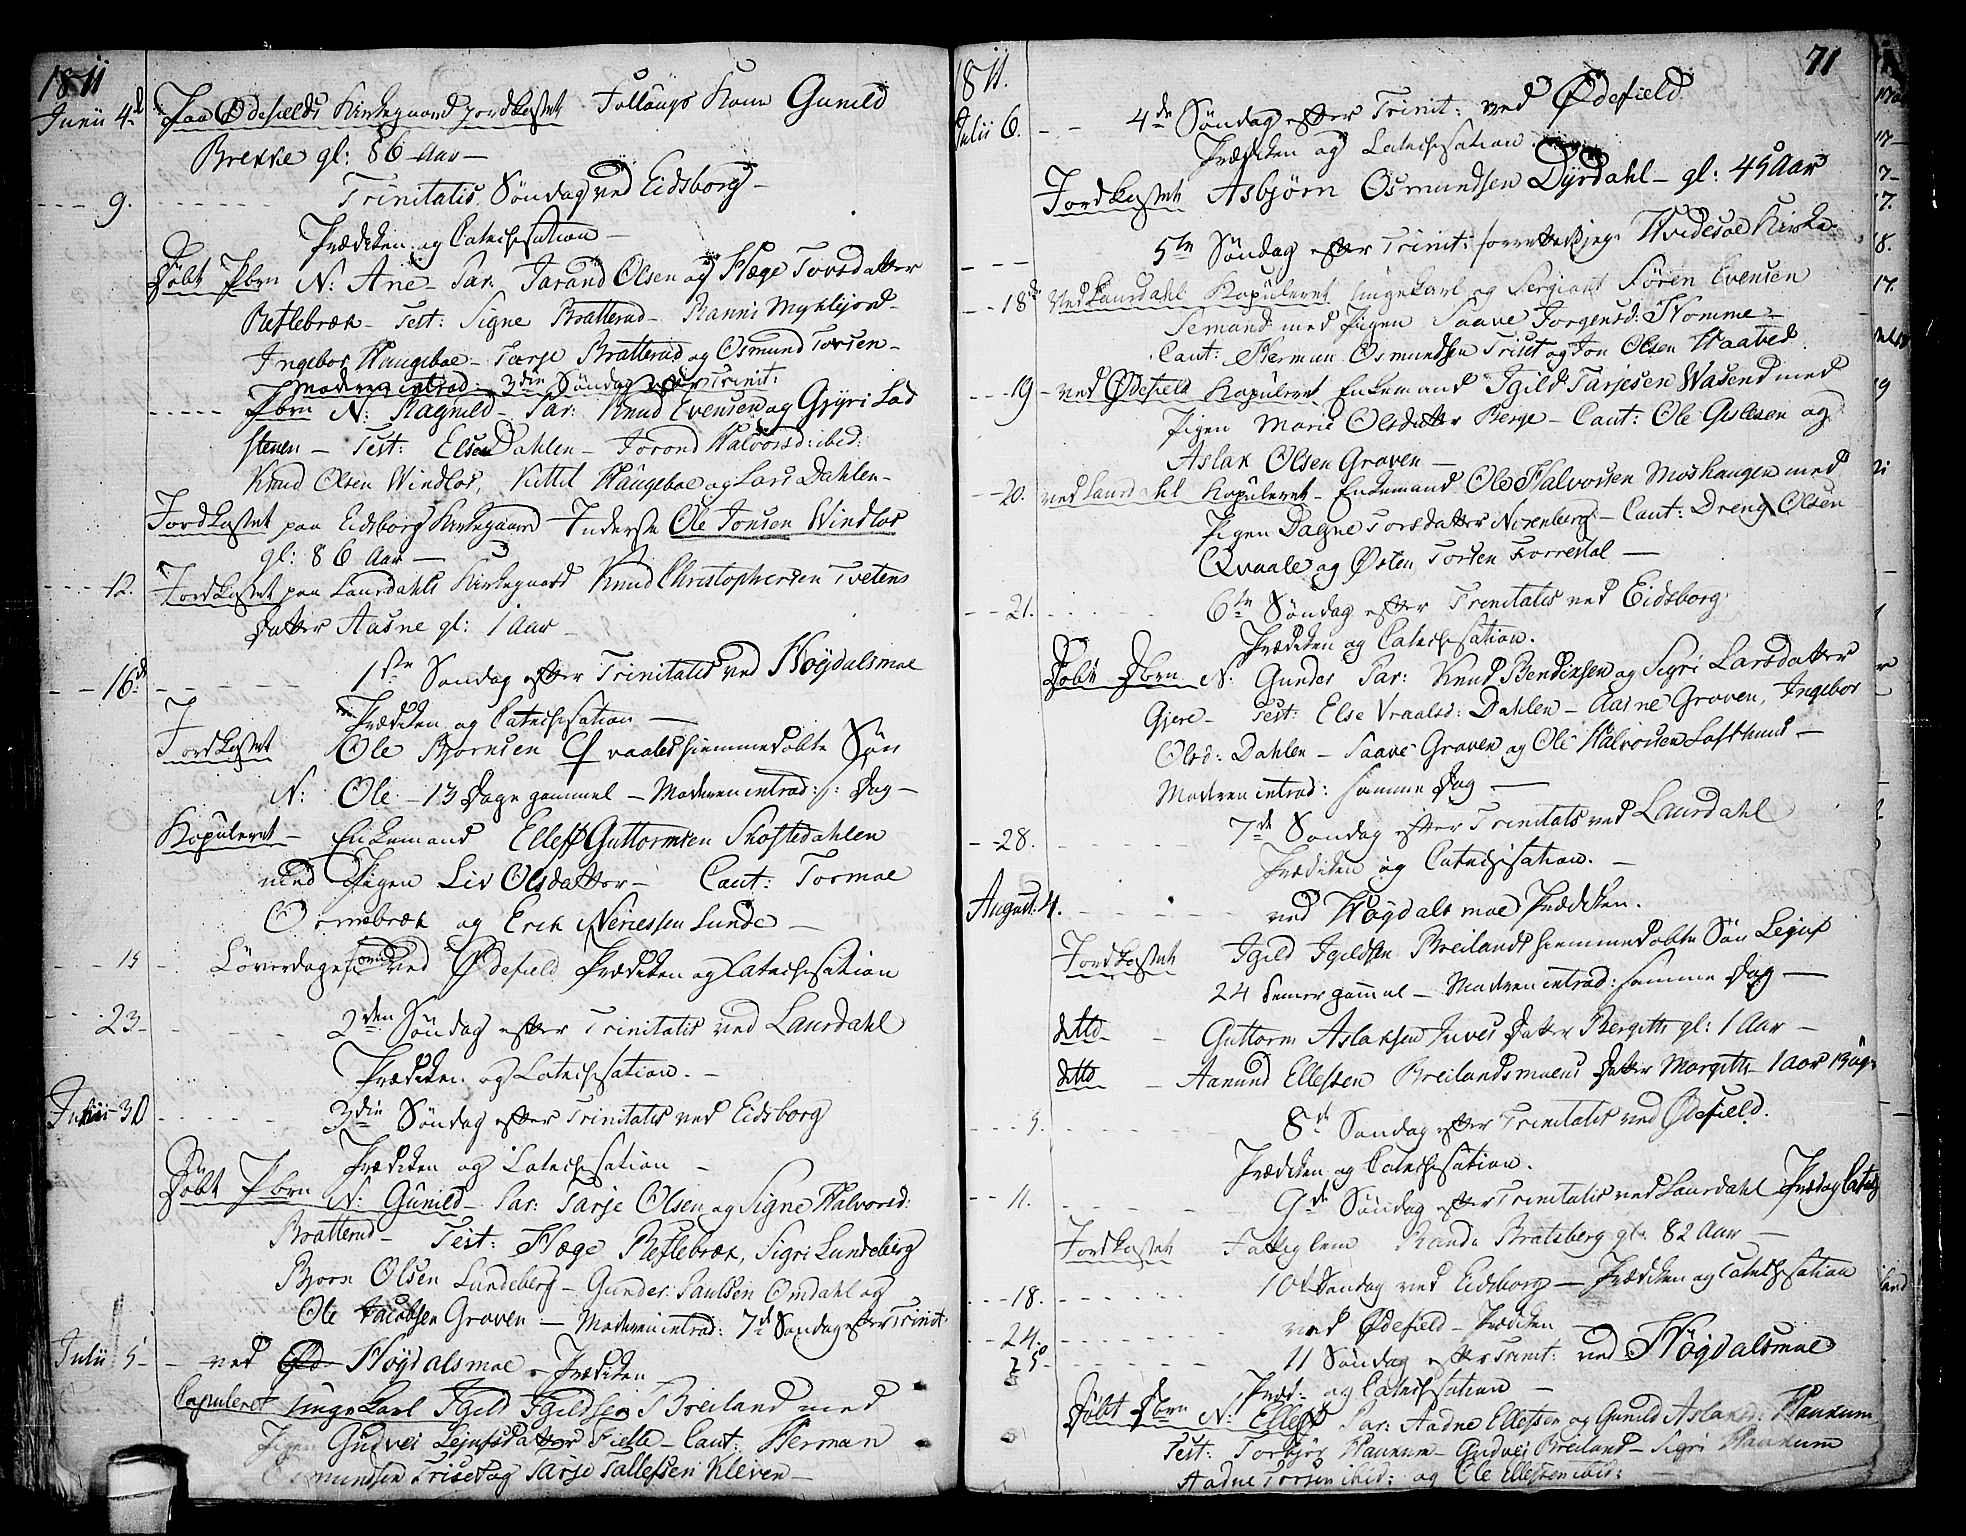 1811
Junii 4de Paa Ødefields Kirkegaard jordkastet Follaugs Kone Gunild
Brekke gl: 86 Aar —
9. Trinitatis Søndag ved Eidsborg —
Prædiken og Catechisation —
Døbt Pbrn N: Ane — Par: Jarand Olsen og Hæge Torsdatter
Reflebræk — Test: Signe Bratterud — Ranni Myklejord —
Ingebor Haugeboe — Tarje Bratterud og Osmund Torsen —
Moderen introd: 3die Søndag efter Trinit:
Pbrn N: Ragnild — Par: Knud Evensen og Gyri Lad
stenen — Test: Else Dahlen — Jorond Halvorsd: ibid:
Knud Olsen Windlos, Kittil Haugeboe og Lars Dahlen —
Jordkastet paa Eidsborg Kirkegaard Inderste Ole Jonsen Windlos
gl: 86 Aar —
12. Jordkastet paa Laurdahls Kirkegaard Knud Christophersen Tvetens
Datter Aasne gl: 1 Aar —
16de 1ste Søndag efter Trinitatis ved Høydalsmoe
Prædiken og Catechisation —
Jordkastet Ole Bjornsen Qvaales hiemmedøbte Søn
N: Ole — 13 Dage gammel — Moderen introd: s: Dag —
Kopuleret — Enkemand Ellef Guttormsen Skoftedahlen
med Pigen Liv Olsdatter — Caut: Tormoe
Ormebræk og Erik Neriessen Lunde —
15 — Løverdagen forud ved Ødefield Prædiken og Catechisation
23 — 2den Søndag efter Trinitatis ved Laurdahl
Prædiken og Catechisation. —
Junii 30 3die Søndag efter Trinitatis ved Eidsborg
Prædiken og Catechisation —
Døbt Pbrn N: Gunild — Par: Tarje Olsen og Signe Halvorsd:
Bratterud — Test: Hæge Reflebræk, Sigri Lundeberg
Bjorn Olsen Lundeberg — Gunder Paulsen Omdahl og
Ole Jacobsen Groven — Moderen introd: 7de Søndag efter Trinit:
Julii 5 — ved Høydalsmoe — Prædiken
Copuleret Ungekarl Igild Igildsen Breiland med
Pigen Gudvei Lejufsdatter Fielle — Caut: Herman
Osmundsen Triset og Tarje Tallefsen Kleven —
1811. 71
Julii 6. 4de Søndag efter Trinit: ved Ødefield
Prædiken og Catechisation.
Jordkastet Asbjørn Osmundsen Dyrdahl — gl: 45 Aar
5te Søndag efter Trinit: forrettet jeg i Hvidesøe Kirke
18de Ved Laurdahl Kopuleret Ungekarl og Sergiant Søren Evensen
Semand med Pigen Saave Jorgensd: Homme —
Caut: Herman Osmundsen Triset og Jon Olsen Haatved.
19 — ved Ødefield Kopuleret Enkemand Igild Tarjesen Wasend med
Pigen Marie Olsdatter Berge — Caut: Ole Gislesen og
Aslak Olsen Groven —
20. ved Laurdahl Kopuleret — Enkemand Ole Halvorsen Moshaugen med
Pigen Dagne Torsdatter Nixenberg — Caut: Dreng Olsen
Qvaale og Østen Torsen Forrestal —
21. 6te Søndag efter Trinitatis ved Eidsborg
Prædiken og Catechisation.
Døbt Dbrn N: Gunder Par: Knud Bendixsen og Sigri Larsdatter
Gjere — Test: Else Vraalsd: Dahlen — Aasne Groven, Ingebor
Olsd: Dahlen — Saave Groven og Ole Halvorsen Lofthuus —
Moderen introd: samme Dag —
28. 7de Søndag efter Trinitatis ved Laurdahl
Prædiken og Catechisation. —
August: 4. ved Høydalsmoe Prædiken.
Jordkastet Igild Igildsen Breilands hiemmedøbte Søn Lejuf
24 timer gammel — Moderen introd: samme Dag —
ditto — Guttorm Aslaksen Juves Datter Bergitte gl: 1 Aar —
ditto — Aanund Ellefsen Breilandsmoens Datter Margitte 1 Aar 13 Ug:
5. 8de Søndag efter Trinitatis ved Ødefield.
Prædiken og Catechisation.
11. 9de Søndag efter Trinitatis ved Laurdahl Præd og Catech
Jordkastet Fattiglem Rande Bratsberg gl: 82 Aar —
18. 10de Søndag ved Eidsborg — Prædiken og Catechisation
24. ved Ødefield — Prædiken —
25 11 Søndag efter Trinit: ved Høydalsmoe
Præd: og Catechisation —
Døbt Dbrn N: Ellef Par: Aadne Ellefsen og Gunild Aslaksd: Haukum
Test: Torbjør Haukum — Gudvei Breiland — Sigri Haukum
Aadne Torsen ibid: og Ole Ellefsen ibid: —